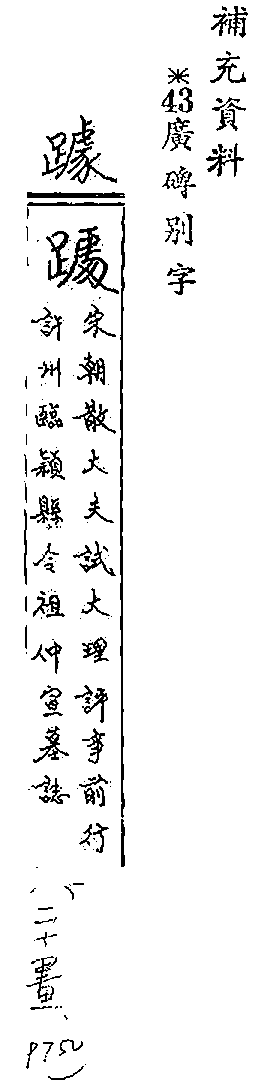 補充資料
※43廣碑別字
躆
宋朝散大夫試大理評事前行
許州臨潁縣令祖仲宣墓誌
二十畫
P750